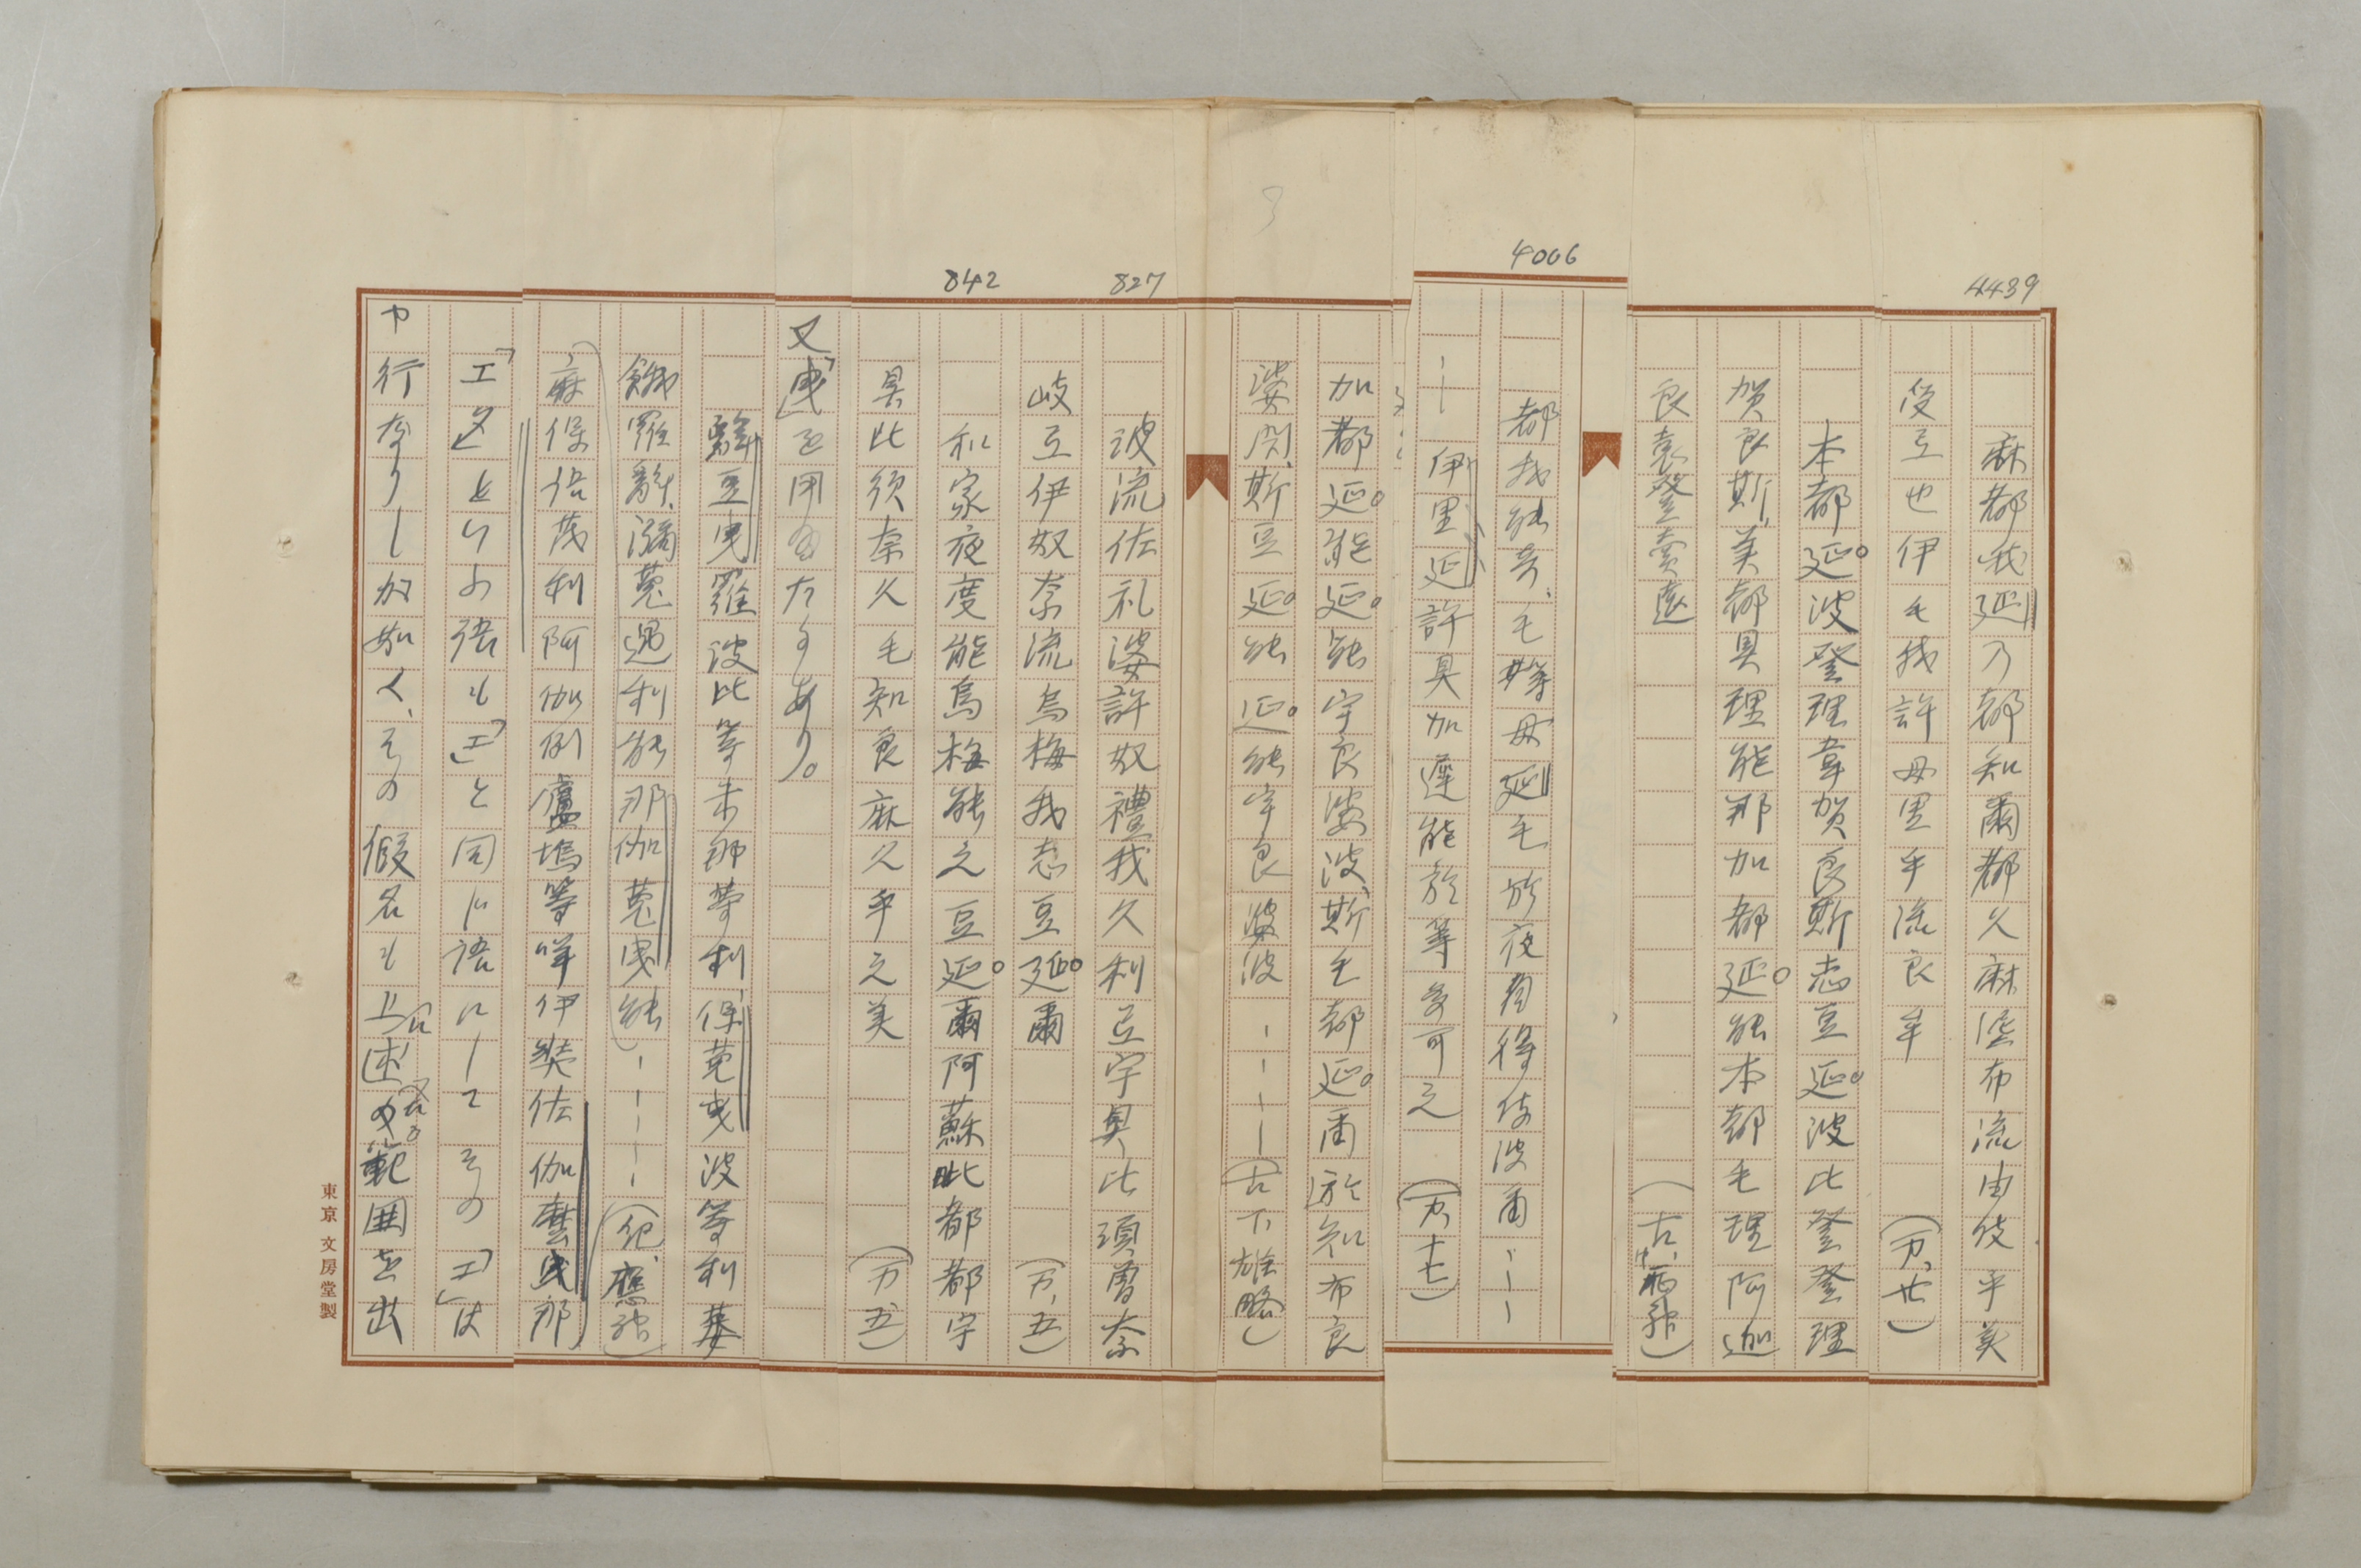 4439
麻都我延乃都知爾都久麻埿布流由伎乎美
伎弖也伊毛我許母里乎流良牟 (万、廿)
本都延波登理韋賀良斯志豆延波比登登理
賀良斯、美都具理能那加都延能本都毛理阿迦
良袁登賣遠 (古、中、應神)
4006
都我能奇、毛等母延毛於夜自得伎波爾、ーー
ーー 伊里延許具加遲能於等多可之 (万、十七)
加都延能延能宇良婆波、斯毛都延爾於知布良
婆閇、斯豆延能延能宇良婆波ーーーー(古、下、雄略)
827
波流佐礼婆許奴禮我久利弖宇具比須曽奈
岐弖伊奴奈流烏梅我志豆延爾 (万、五)
842
和家夜度能烏梅能之豆延爾阿蘇毗都都宇
具比須奈久毛知良麻久乎之美 (万、五)
又「曳」を用ゐたるあり。
辭豆曳羅波比等未那等利、保莵曳波等利委
餓羅辭、瀰莵遇利能那伽莵曳能ーーーー(紀、應神)
麻保語茂利阿伽例蘆塢等咩伊奘佐伽麼曳那
「エダ」といふ語も「エ」と同じ語にしてその「エ」は
や行なりしが如く、その假名も上述の範囲を出
東京 文房堂製